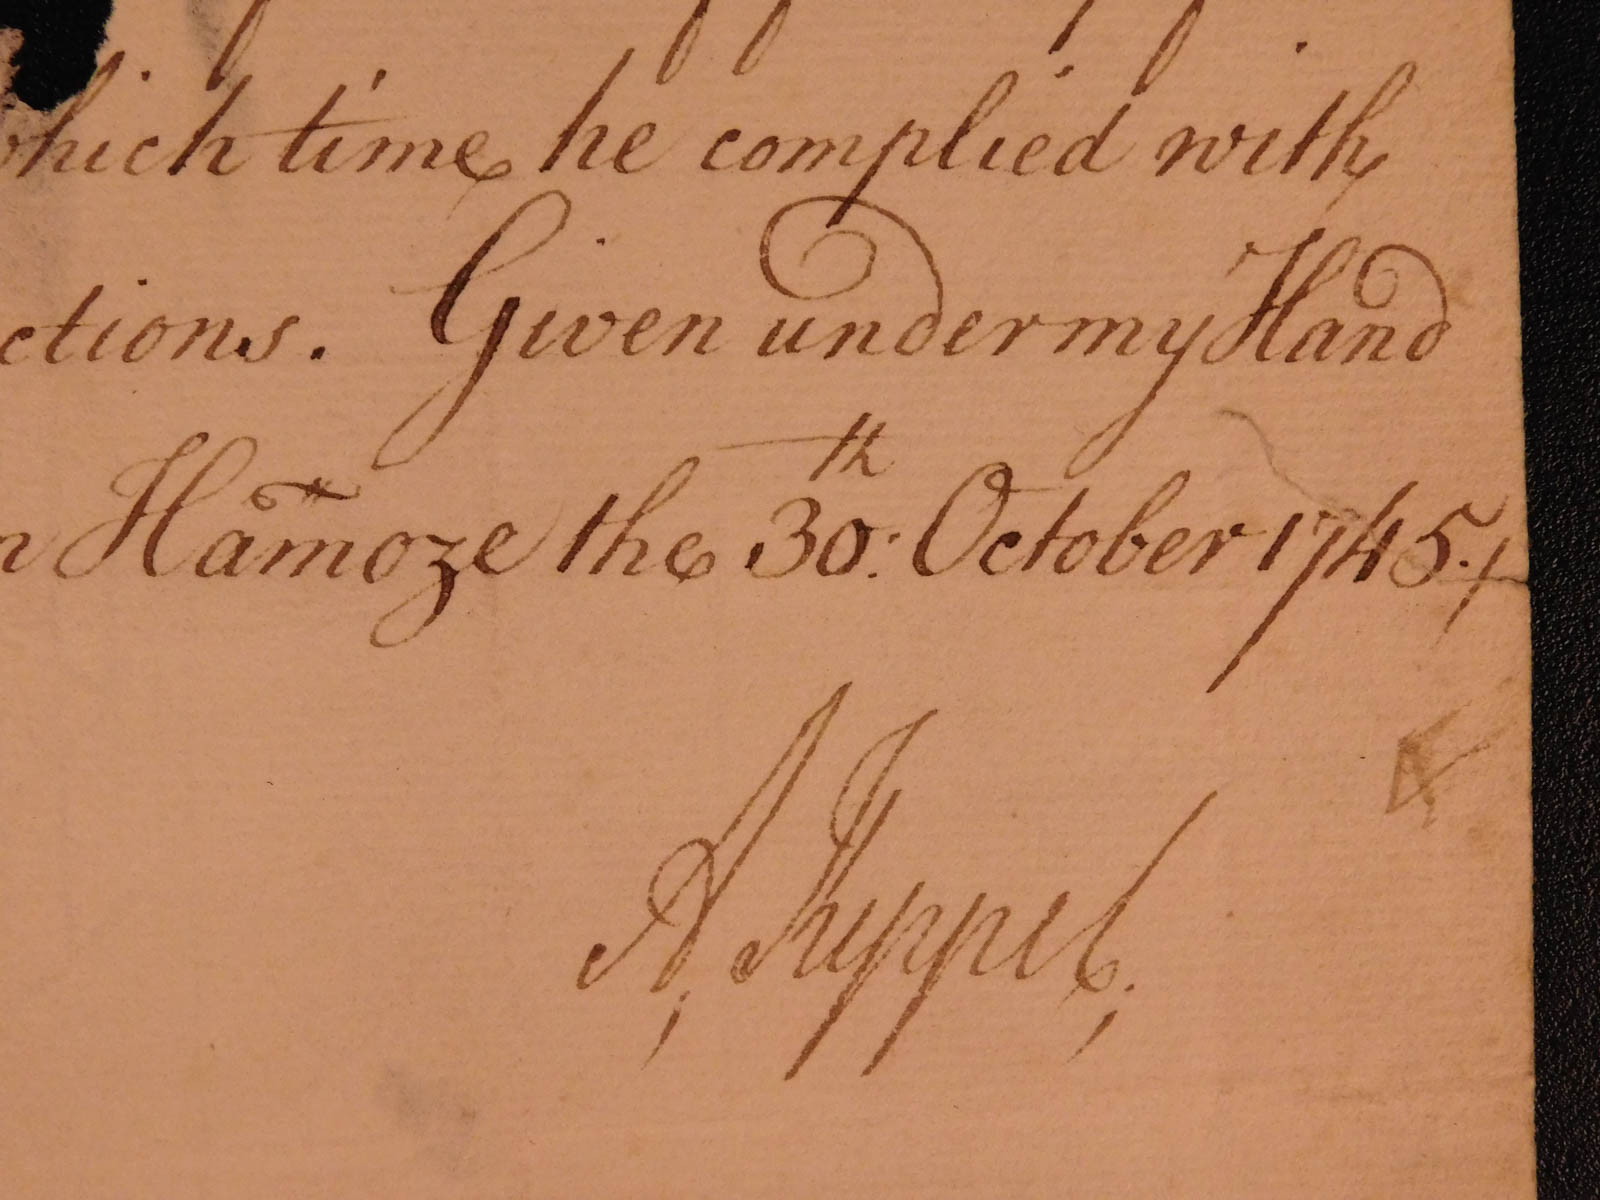 which time he complied with
ctions. Given under my Hand
n Ham̃oze the 30th: October 1745./
A, Keppel;